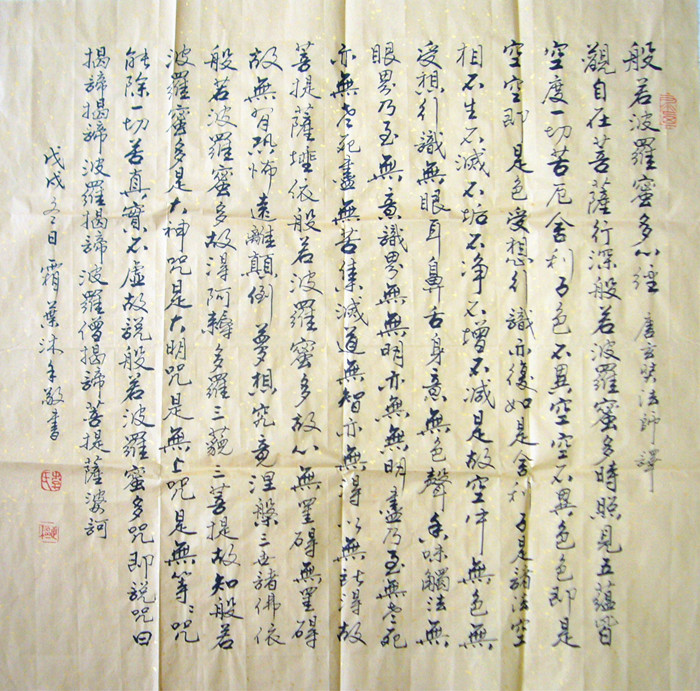 般若波羅蜜多心經 唐玄奘法師譯
觀自在菩薩行深般若波羅蜜多時照見五蘊皆
空度一切苦厄舍利子色不異空空不異色色即是
空空即是色受想行識亦復如是舍利子是諸法空
相不生不滅不垢不净不增不減是故空中無色無
受想行識無眼耳鼻舌身意無色聲香味觸法無
眼界乃至無意識界無無明亦無無明盡乃至無老死
亦無老死盡無苦集滅道無智亦無得以無所得故
菩提薩埵依般若波羅蜜多故心無罣碍無罣碍
故無有恐怖遠離顛倒夢想究竟涅槃三世諸佛依
般若波羅蜜多故得阿耨多羅三藐三菩提故知般若
波羅蜜多是大神咒是大明咒是無上咒是無等々咒
能除一切苦真實不虛故說般若波羅蜜多咒即說咒曰
揭諦揭諦波羅揭諦波羅僧揭諦菩提薩婆訶
戊戌冬日霜葉沐手敬書